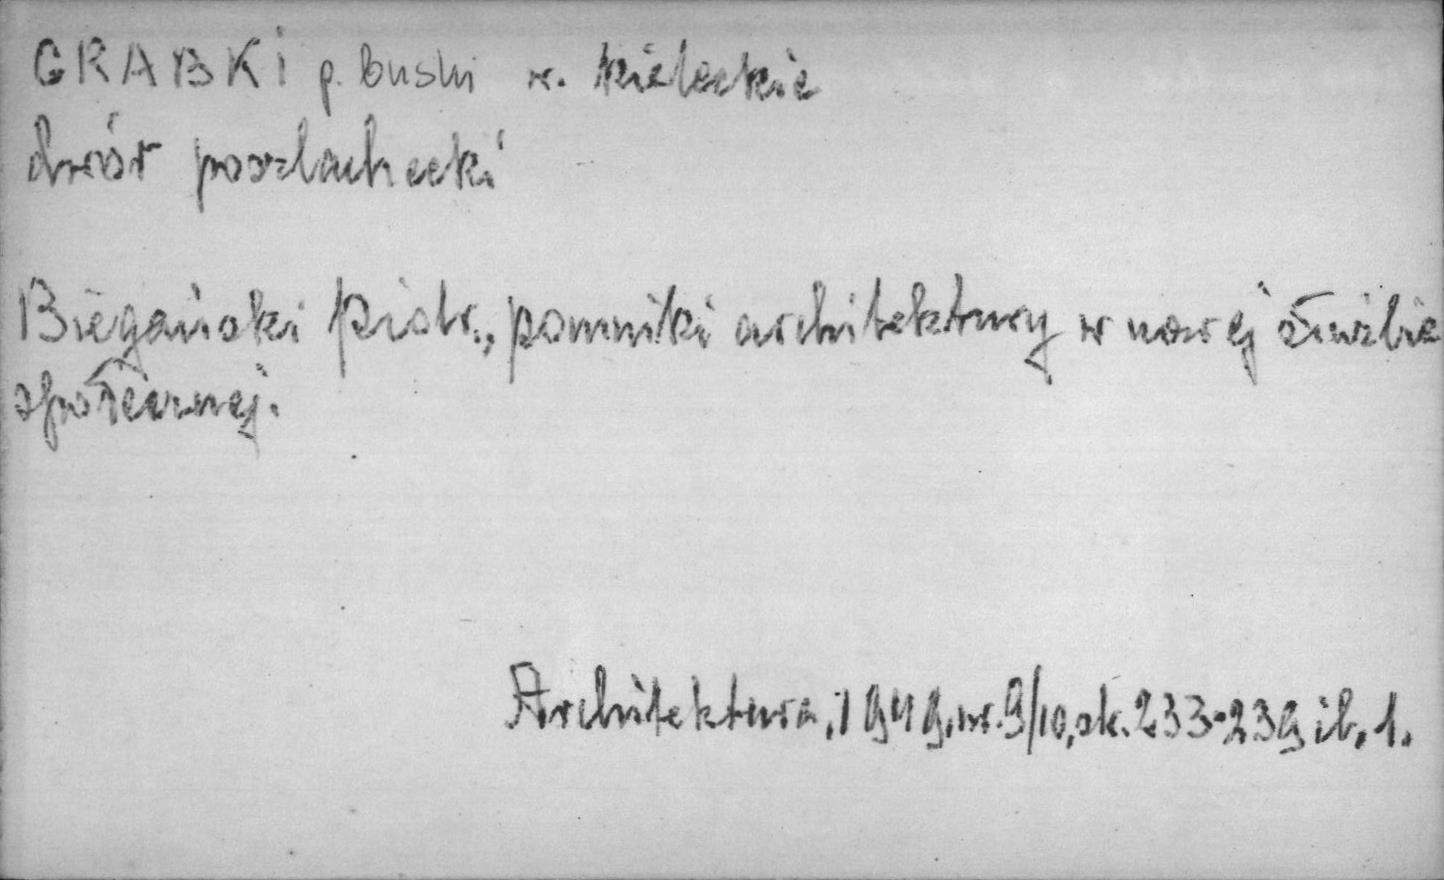 GRABKI p. buski w. kieleckie
dwór poszlachecki
Biegański Piotr., pomniki architektury w nowej służbie
społecznej.
Architektura, 1949, nr. 9/10, sk. 233-239 il. 1.